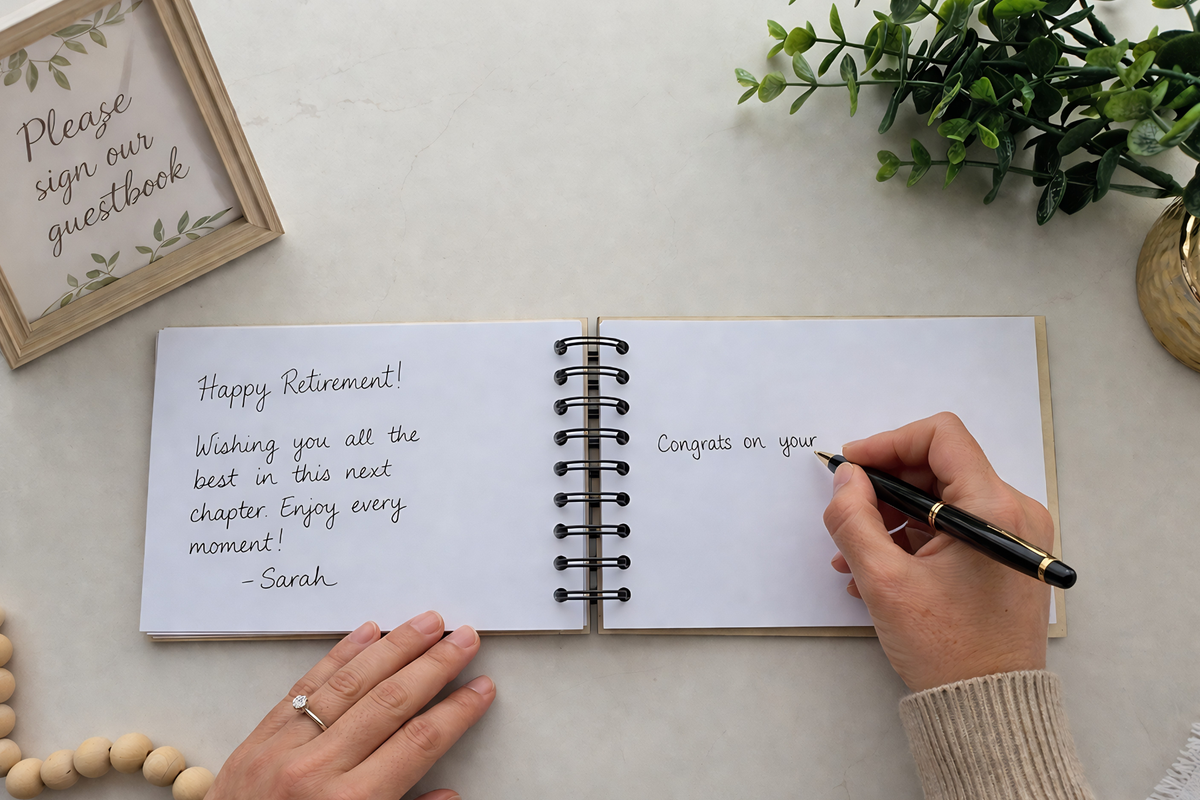 Please
sign our
guestbook
Happy Retirement!
Wishing you all the
best in this next
chapter. Enjoy every
moment!
- Sarah
Congrats on your